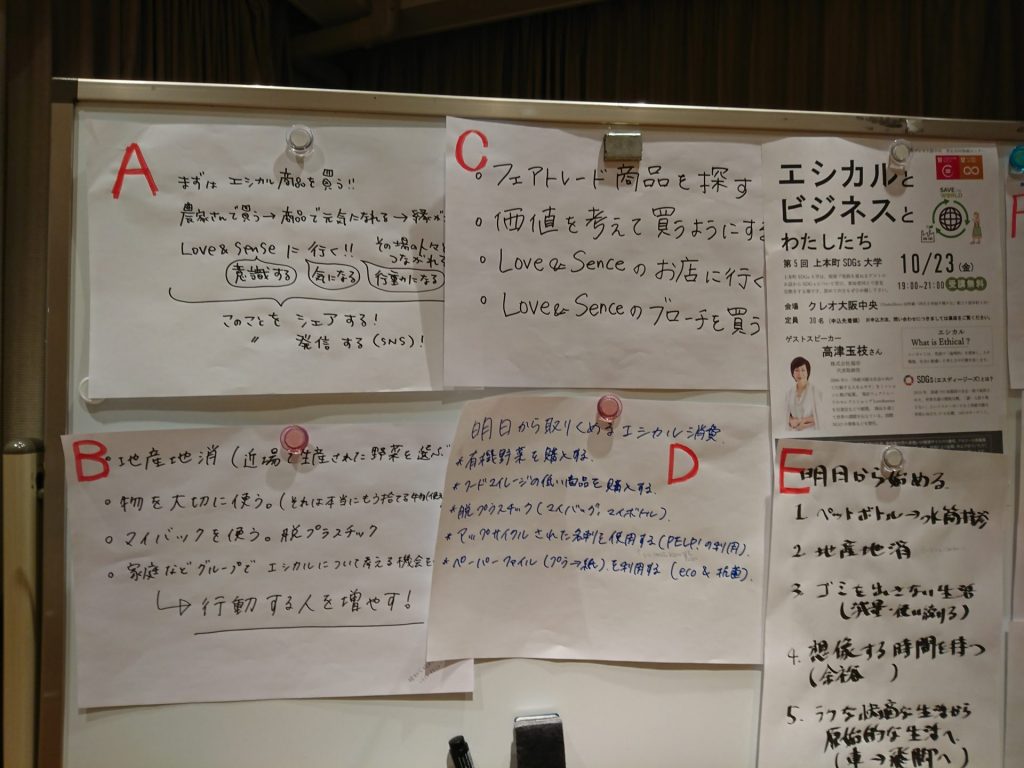 A
まずは エシカル商品を買う!!
農家さんで買う→商品で元気になれる→縁が
Love&Senseに行く!! その場の人々と
つながれる
意識する 気になる 行動かになる
このことを シェアする!
〃 発信する(SNS)!
C
○ フェアトレード商品を探す
○ 価値を考えて買うようにする
○ Love&Senceのお店に行く
○ Love&Senceのブローチを買う
エシカルと
ビジネスと
わたしたち
SAVE the WORLD
第5回 上本町SDGs大学
10/23(金)
19:00~21:00 受講無料
会場 クレオ大阪中央
定員 30名(申込先着順)
ゲストスピーカー
高津玉枝さん
株式会社福市
代表取締役
エシカル
What is Ethical?
SDGs(エスディージーズ)とは?
B
○ 地産地消(近場で生産された野菜を選ぶ
○ 物を大切に使う。(それは本当にもう捨てる物
○ マイバックを使う。脱プラスチック
○ 家庭などグループで エシカルについて考える機会を
↳ 行動する人を増やす!
D
明日から取りくめるエシカル消費
*有機野菜を購入する。
*フードマイレージの低い商品を購入する。
*脱プラスチック(マイバッグ、マイボトル)。
*アップサイクルされた を使用する(PELP!の利用)。
*ペーパーファイル(プラ→紙)を利用する(eco&抗菌)。
E
明日から始める
1. ペットボトル→水筒持参
2. 地産地消
3. ゴミを出さない生活
(減量・使い続ける)
4. 想像する時間を持つ
(余裕)
5. ラクな快適な生活から
原始的な生活へ
(車→ へ)